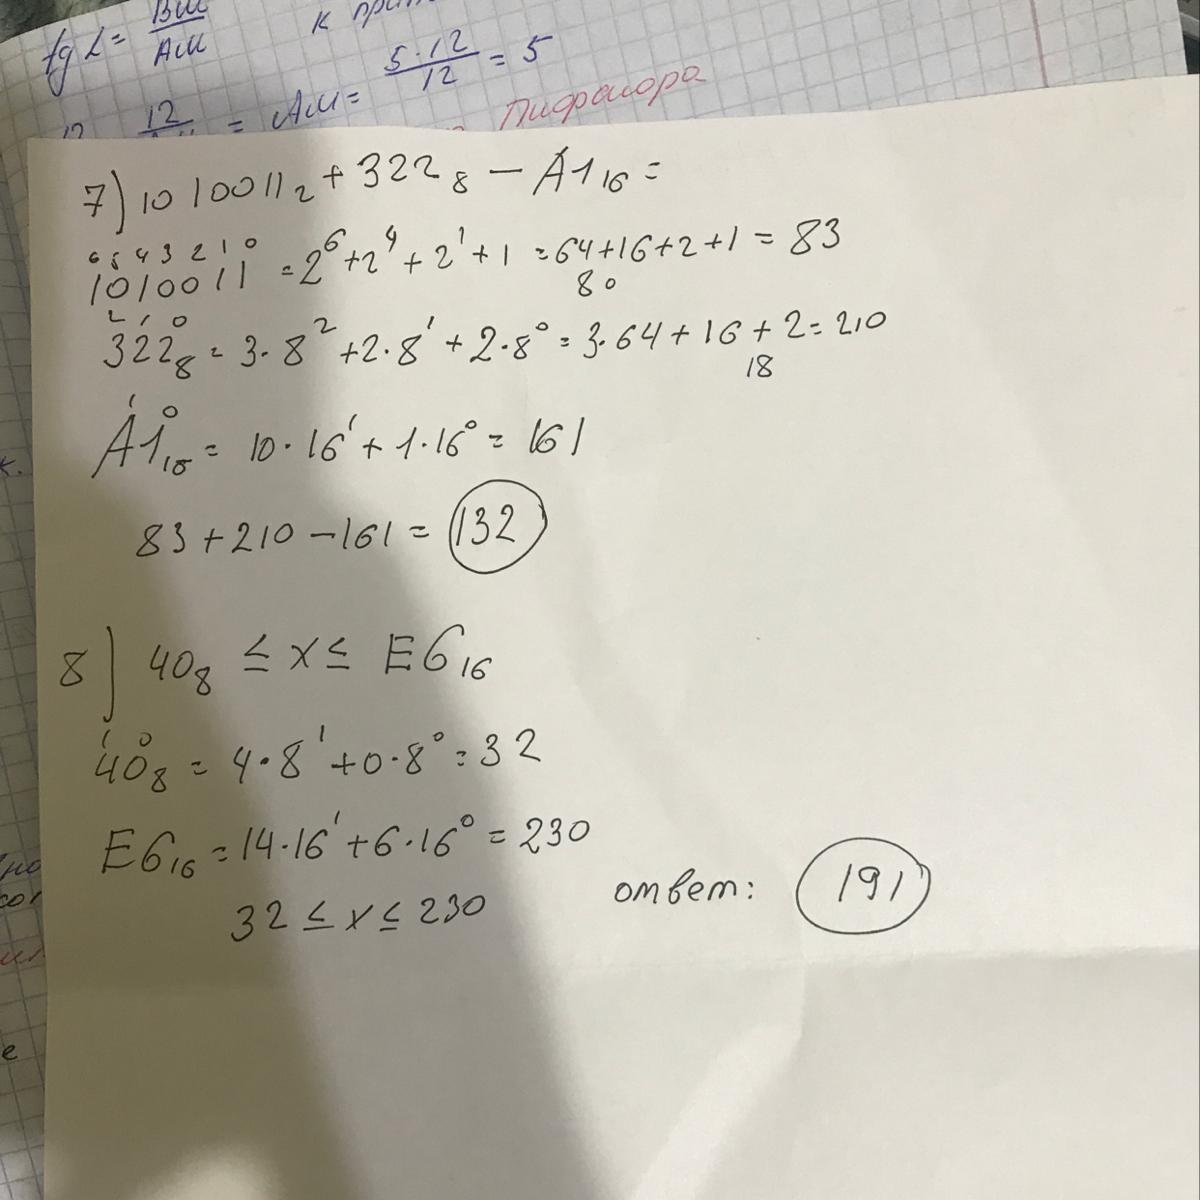 tg L = BM / AM
к
12 / = AM = 5·12 / 12 = 5
Пифагора
7) 1010011₂ + 322₈ − A1₁₆ =
6 5 4 3 2 1 0
1010011 = 2⁶ + 2⁴ + 2¹ + 1 = 64 + 16 + 2 + 1 = 83
80
2 1 0
322₈ = 3·8² + 2·8¹ + 2·8⁰ = 3·64 + 16 + 2 = 210
18
1 0
A1₁₆ = 10·16¹ + 1·16⁰ = 161
83 + 210 − 161 = 132
8) 40₈ ≤ x ≤ E6₁₆
1 0
40₈ = 4·8¹ + 0·8⁰ = 32
E6₁₆ = 14·16¹ + 6·16⁰ = 230
32 ≤ x ≤ 230
ответ: 191